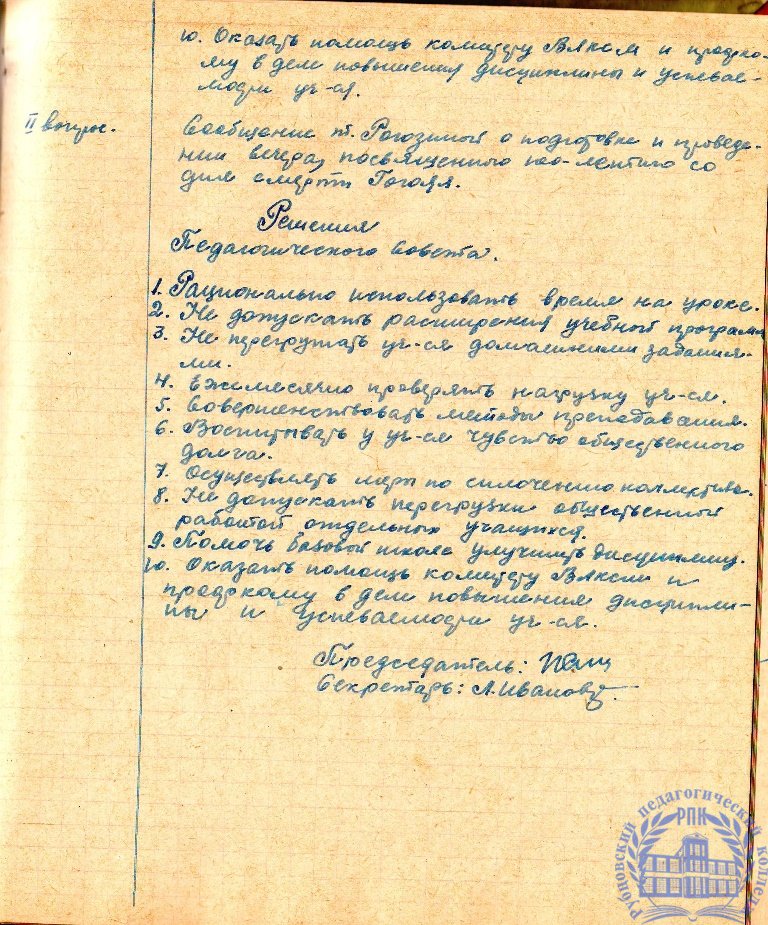 10. Оказать помощь комитету ВЛКСМ и профко-
му в деле повышения дисциплины и успевае-
мости уч-ся.
II вопрос.
Сообщение т. Рогозиной о подготовке и проведе-
нии вечера, посвященного 100-летию со
дня смерти Гоголя.
Решения
Педагогического совета.
1. Рационально использовать время на уроке.
2. Не допускать расширения учебной программ
3. Не перегружать уч-ся домашними задания-
ми.
4. Ежемесячно проверять нагрузку уч-ся.
5. Совершенствовать методы преподавания.
6. Воспитывать у уч-ся чувство общественного
долга.
7. Осуществлять меры по сплочению коллектива.
8. Не допускать перегрузки общественной
работой отдельных учащихся.
9. Помочь базовой школе улучшить дисциплину.
10. Оказать помощь комитету ВЛКСМ и
профкому в деле повышения дисципли-
ны и успеваемости уч-ся.
Председатель:
Секретарь: Л. Иванова.
Рубновский педагогический коллед
РПК